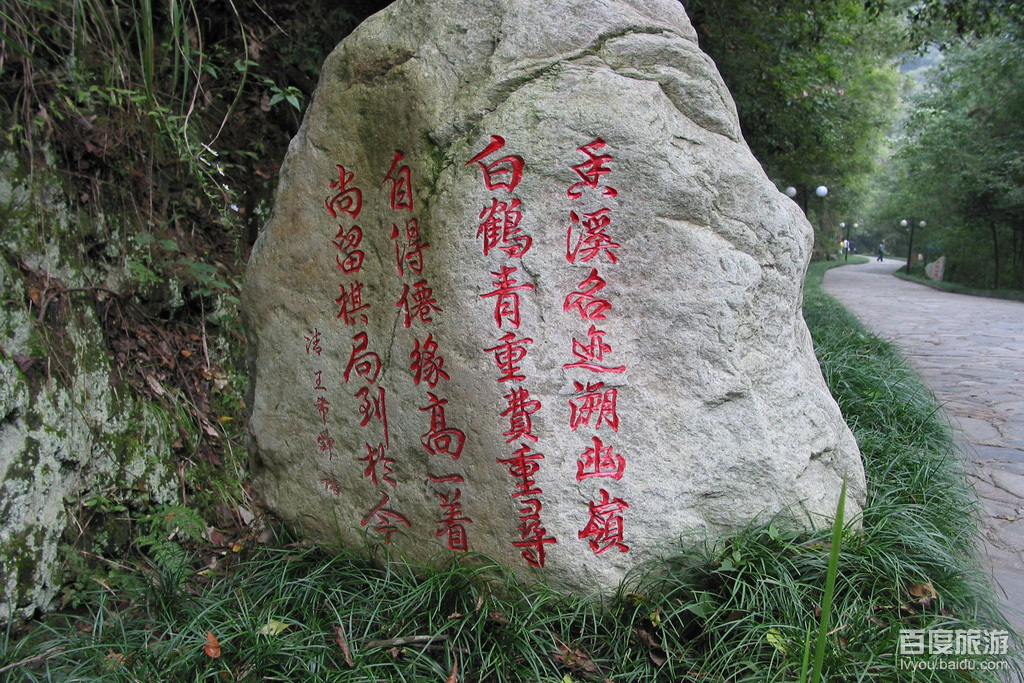 溪名迹溯幽嶺
白鶴青重費重尋
自得僊緣高一着
尚留棋局到於今
清 王
百度旅游
lvyou.baidu.com